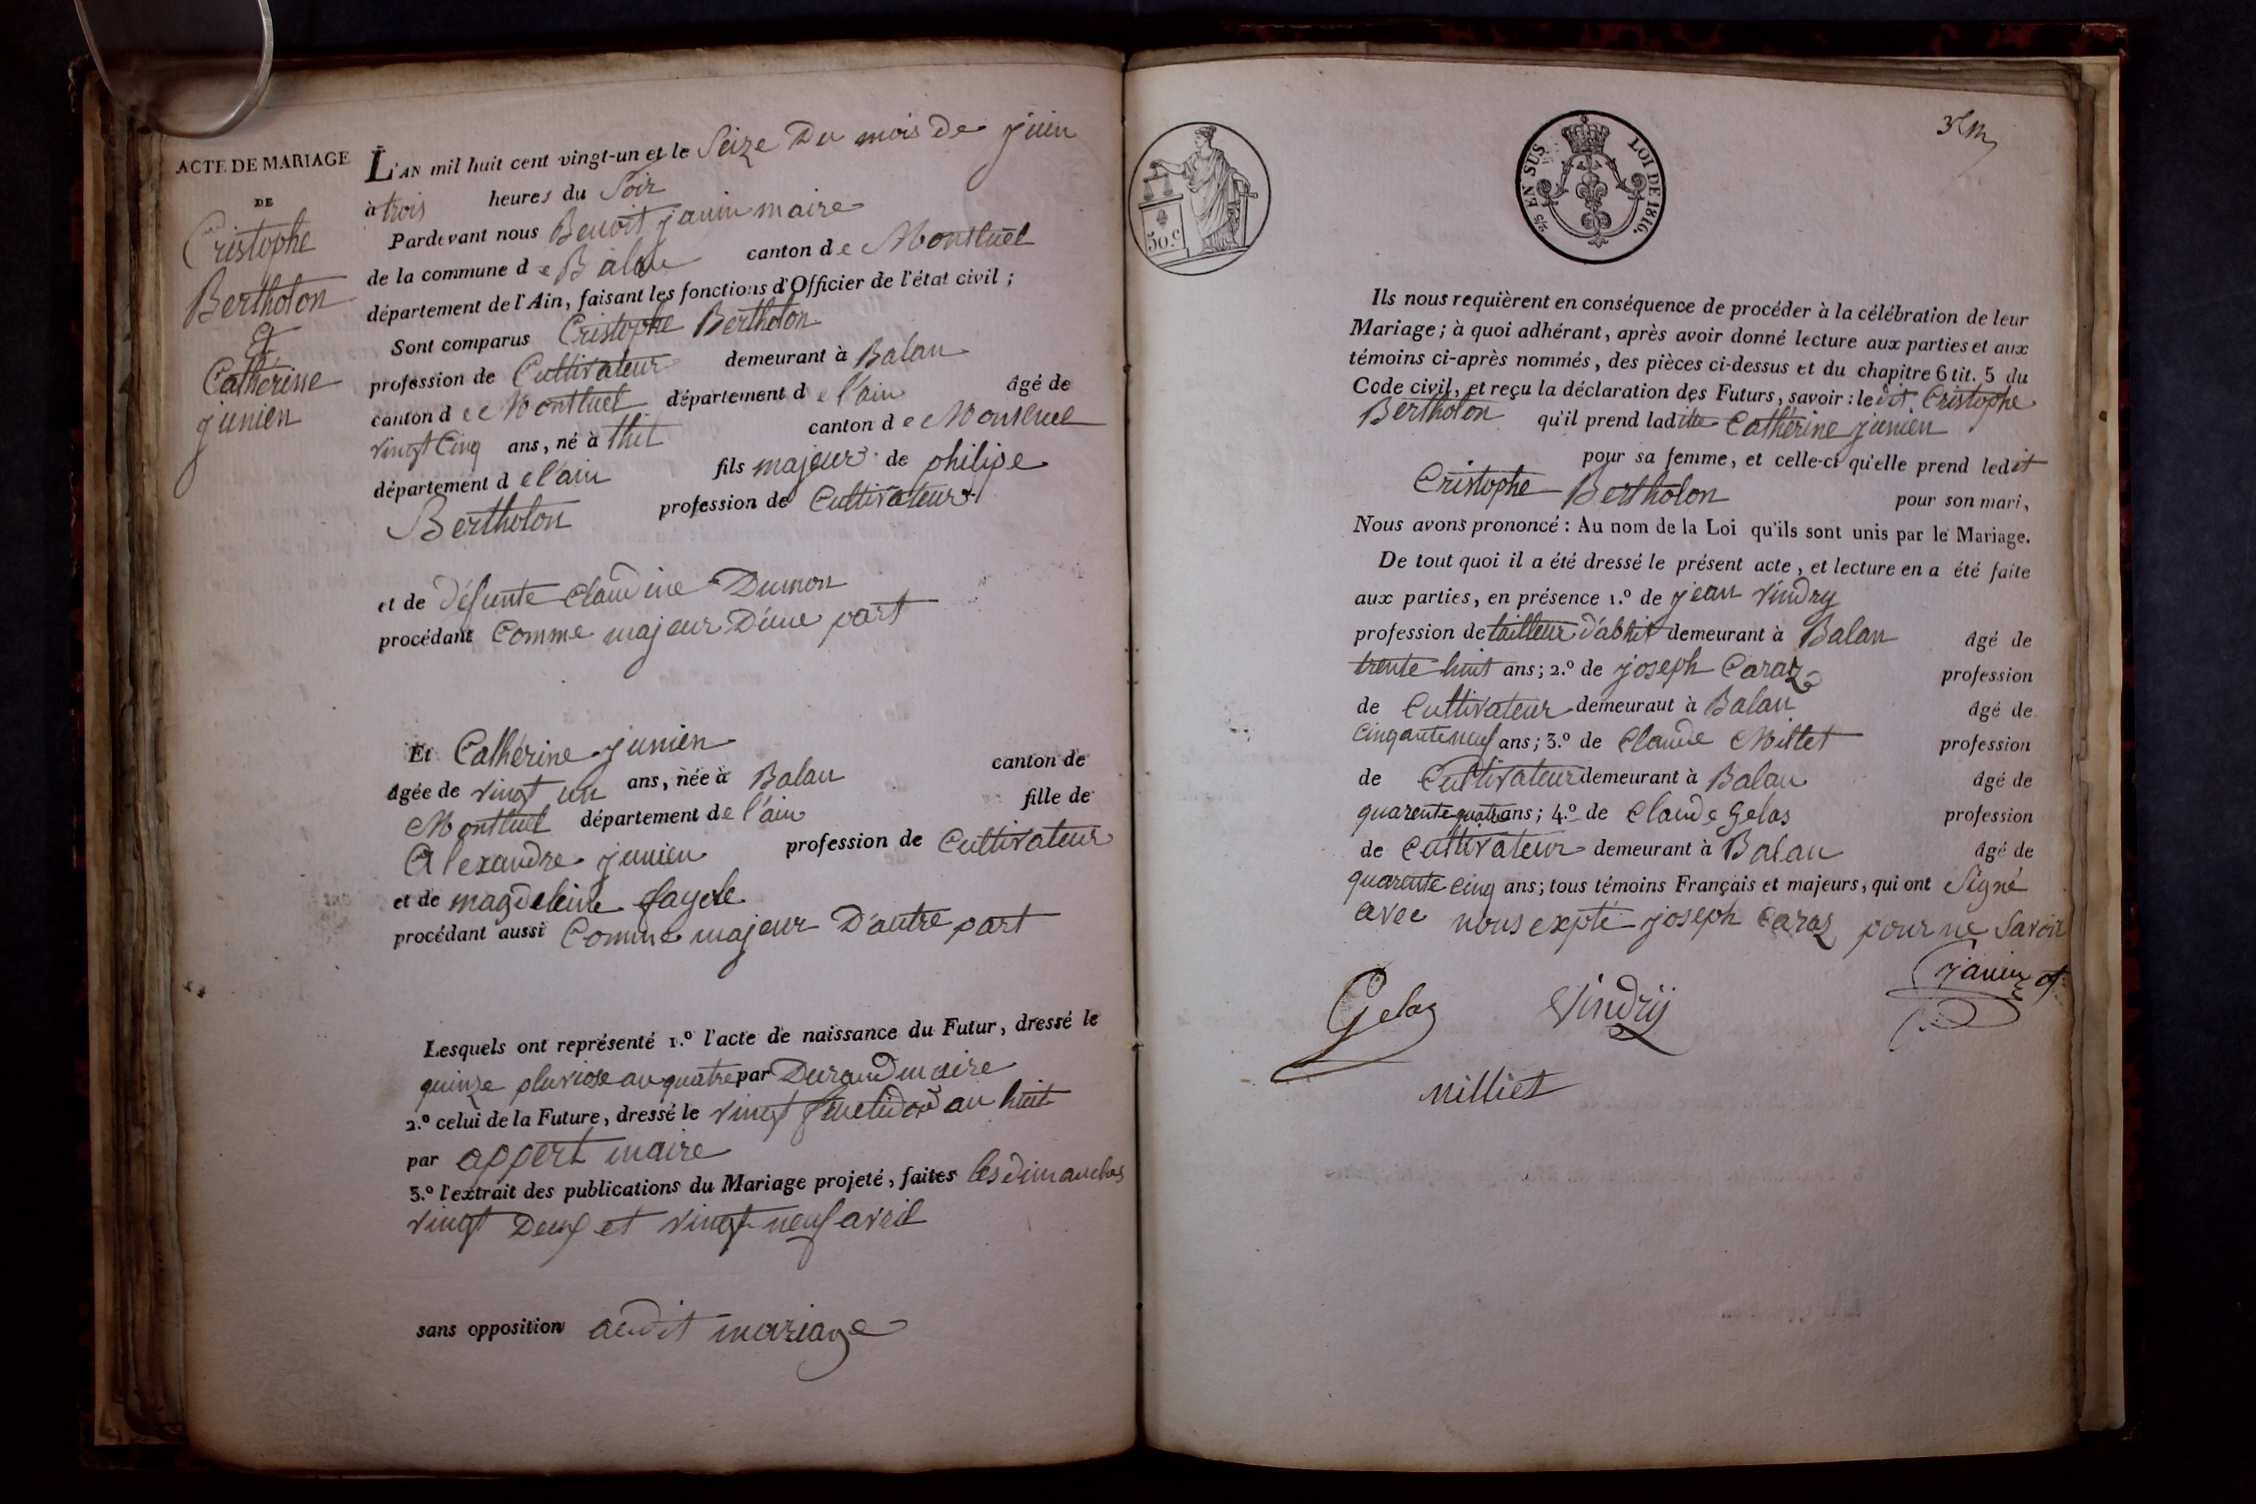 ACTE DE MARIAGE
DE
Cristophe
Bertholon
et
Catherine
junien
L'AN mil huit cent vingt-un et le Seize Du mois de juin
à trois heures du Soir
Pardevant nous Benoit janin maire
de la commune de Balan canton de Montluel
département de l'Ain, faisant les fonctions d'Officier de l'état civil ;
Sont comparus Cristophe Bertholon
profession de Cultivateur demeurant à Balan
canton de Montluel département de l'ain âgé de
vingt Cinq ans, né à thil canton de Montluel
département de l'ain fils majeur de philipe
Bertholon profession de Cultivateur
et de défunte Claudine Dumon
procédant Comme majeur D'une part
Et Cathérine junien
âgée de vingt un ans, née à Balan canton de
Montluel département de l'ain fille de
Alexandre junien profession de Cultivateur
et de magdeleine fayole
procédant aussi Comme majeur D'autre part
Lesquels ont représenté 1.º l'acte de naissance du Futur, dressé le
quinze pluviose an quatre par Durand maire
2.º celui de la Future, dressé le vingt fructidor an huit
par appert maire
3.º l'extrait des publications du Mariage projeté, faites les dimanches
vingt Deux et vingt neuf avril
sans opposition audit mariage
50.c
2/5 EN SUS LOI DE 1816.
Ils nous requièrent en conséquence de procéder à la célébration de leur
Mariage; à quoi adhérant, après avoir donné lecture aux parties et aux
témoins ci-après nommés, des pièces ci-dessus et du chapitre 6 tit. 5 du
Code civil, et reçu la déclaration des Futurs, savoir : le dit Cristophe
Bertholon qu'il prend laditte Cathérine junien
pour sa femme, et celle-ci qu'elle prend ledit
Cristophe Bertholon pour son mari,
Nous avons prononcé : Au nom de la Loi qu'ils sont unis par le Mariage.
De tout quoi il a été dressé le présent acte, et lecture en a été faite
aux parties, en présence 1.º de jean Vindry
profession de tailleur d'abhit demeurant à Balan âgé de
trente huit ans; 2.º de joseph Caraz profession
de Cultivateur demeuraut à Balan âgé de
Cinquante neuf ans; 3.º de Claude Millet profession
de Cultivateur demeurant à Balan âgé de
quarente quatre ans; 4.º de Claude Gelas profession
de Cultivateur demeurant à Balan âgé de
quarente Cinq ans; tous témoins Français et majeurs, qui ont Signé
avec nous expté joseph Caraz pour ne Savoir
janin
Gelas Vindry
Milliet